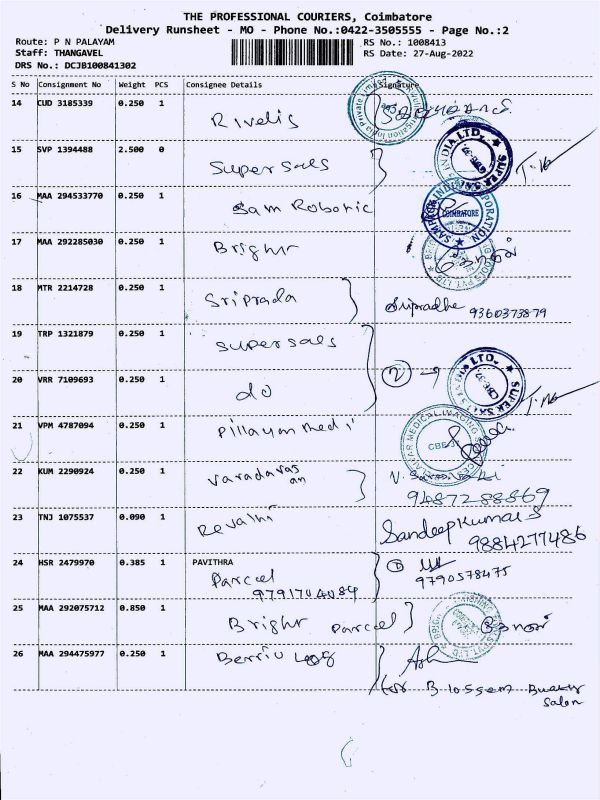 THE PROFESSIONAL COURIERS, Coimbatore
Delivery Runsheet - MO - Phone No.:0422-3505555 - Page No.:2
Route: P N PALAYAM
RS No.: 1008413
Staff: THANGAVEL
RS Date: 27-Aug-2022
DRS No.: DCJB100841302
S No Consignment No Weight PCS Consignee Details Signature
14 CUD 3185339 0.250 1 Rivelis
15 SVP 1394488 2.500 0 Supersals
SUPER SALES INDIA LTD.
16 MAA 294533770 0.250 1 Sam Robotic
COIMBATORE
17 MAA 292285030 0.250 1 Bright
18 MTR 2214728 0.250 1 Sriprada Sripradha 9360373879
19 TRP 1321879 0.250 1 supersals
20 VRR 7109693 0.250 1 do 2
SUPER SALES INDIA LTD.
21 VPM 4787094 0.250 1 Pillayan medi
22 KUM 2290924 0.250 1 Varadaras an
9487288869
23 TNJ 1075537 0.090 1 Revathi Sandeep Kumar S
9884277486
24 HSR 2479970 0.385 1 PAVITHRA
Parcel
9791704084
9790578475
25 MAA 292075712 0.850 1 Bright parcel
26 MAA 294475977 0.250 1
for Blossem Beauty
Salon